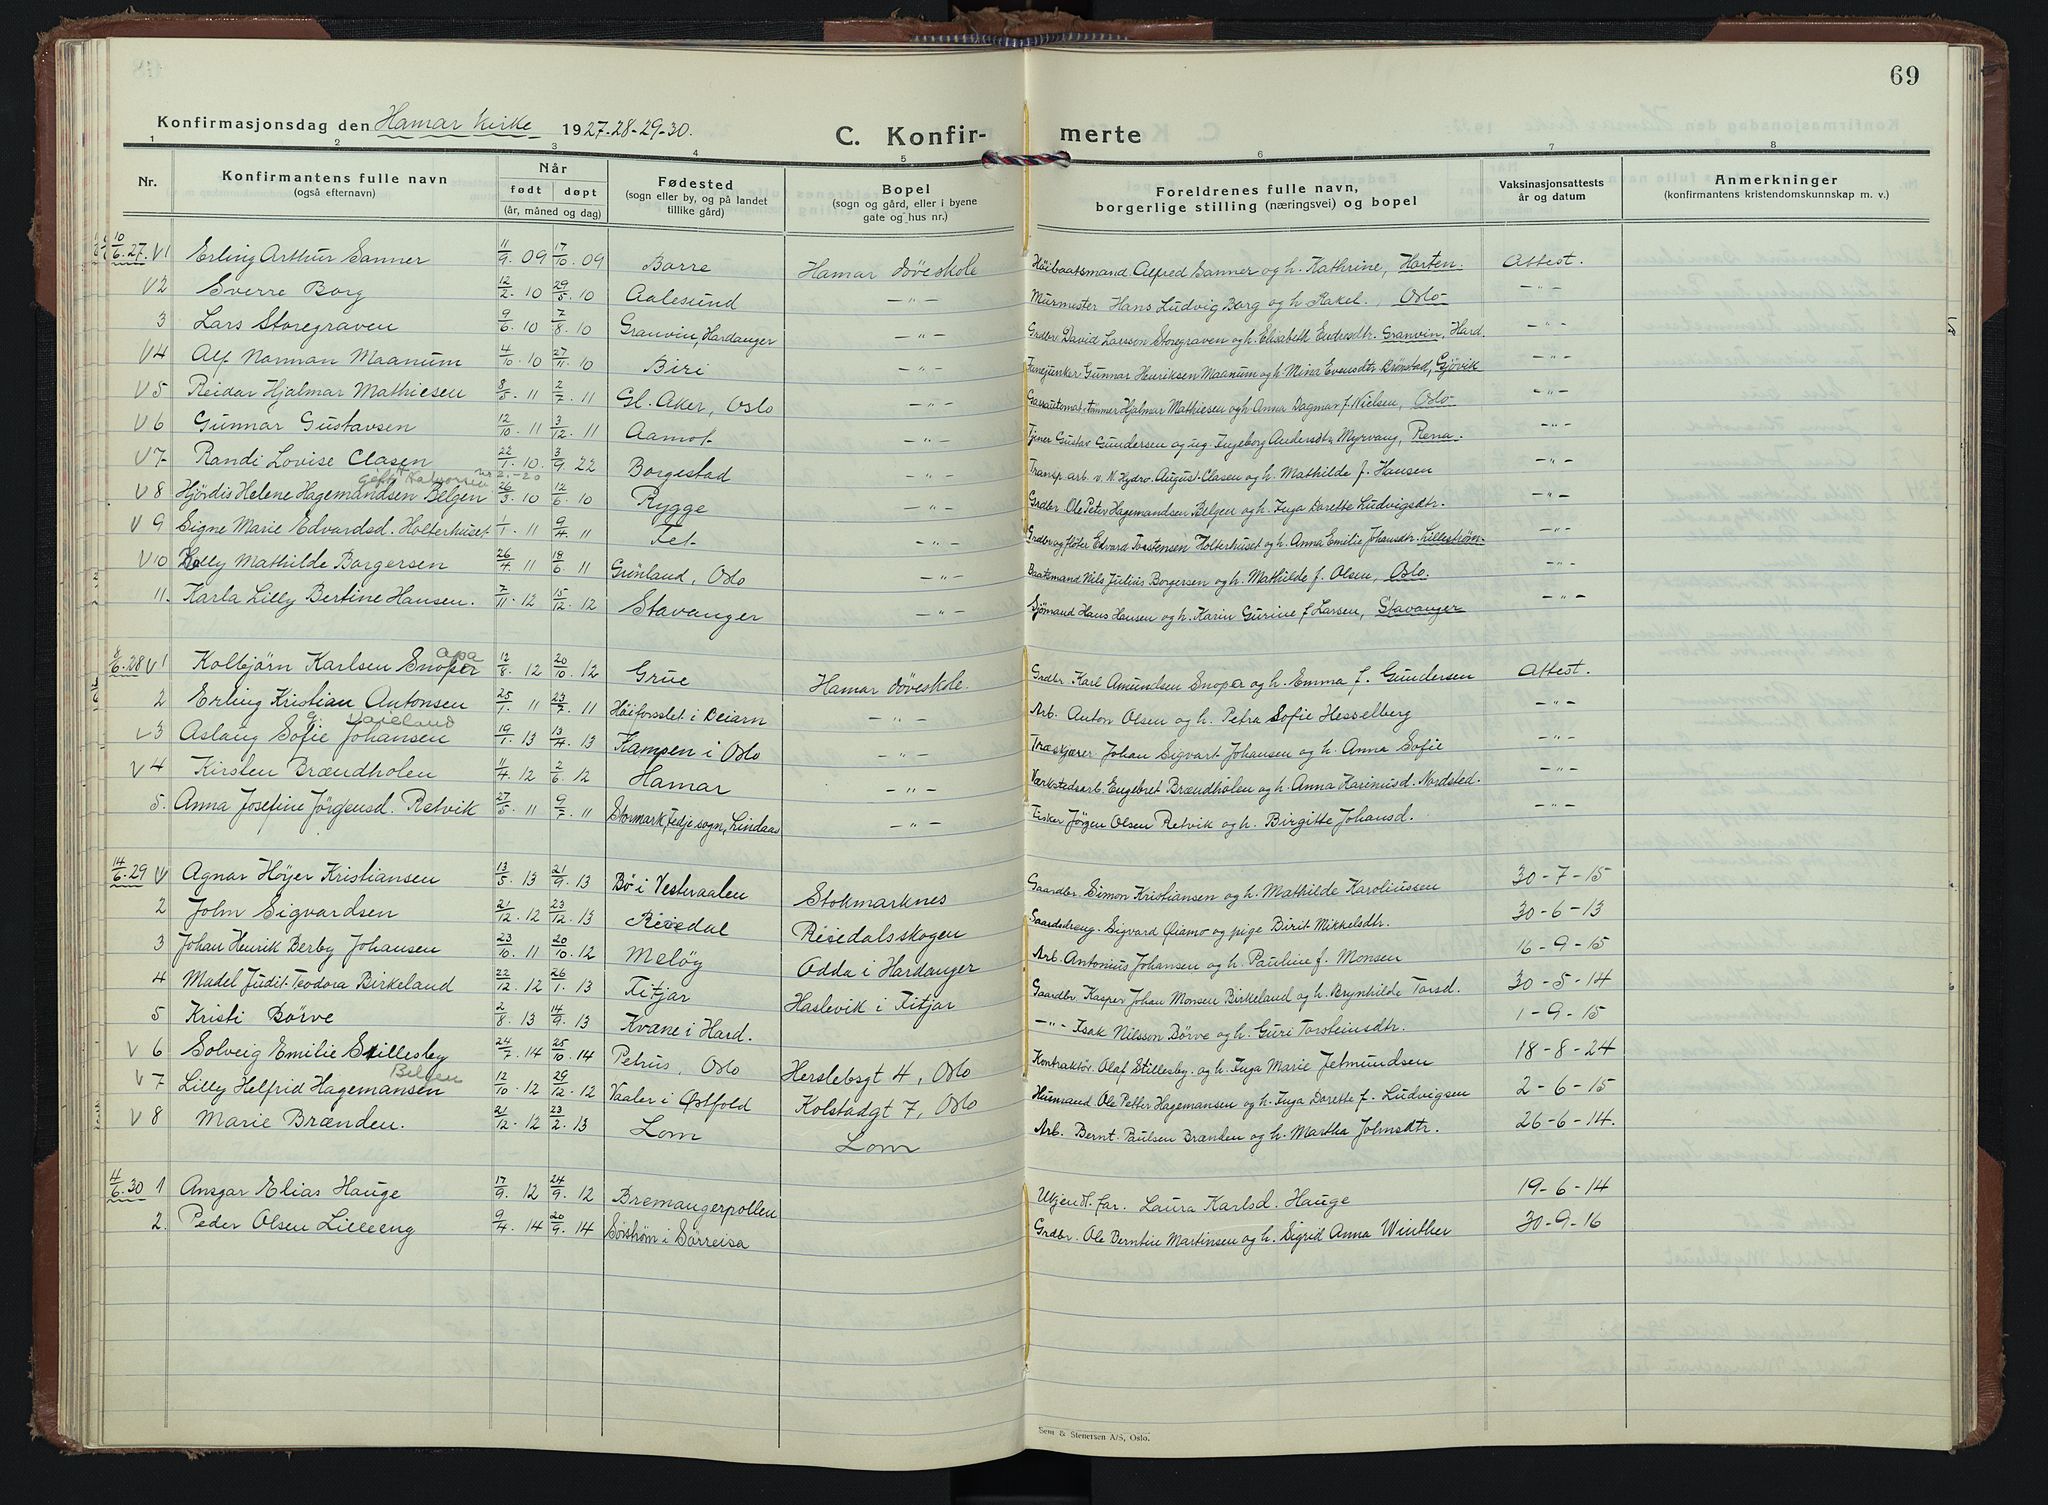 69
Konfirmasjonsdag den Hamar kirke 1927-28-29-30. C. Konfir- merte
1 2 3 4 5 6 7 8
Nr. Konfirmantens fulle navn (også efternavn) Når født døpt (år, måned og dag) Fødested (sogn eller by, og på landet tillike gård) Bopel (sogn og gård, eller i byene gate og hus nr.) Foreldrenes fulle navn, borgerlige stilling (næringsvei) og bopel Vaksinasjonsattests år og datum Anmerkninger (konfirmantens kristendomskunnskap m. v.)
10/6.27. V1 Erling Arthur Sanner 11/9 09 17/10 09 Borre Hamar Døveskole Høibaatsmand Alfred Sanner og h. Kathrine, Horten. Attest.
V2 Sverre Borg 12/2. 10 29/5. 10 Aalesund -"- Murmester Hans Ludvig Borg og h. Rakel., Oslo- -"-
3 Lars Storegraven 9/6. 10 7/8. 10 Granvin, Hardanger -"- Grdbr David Larsson Storegraven og h. Elisabeth Endresdtr. Granvin, Hard. -"-
V4 Alf Norman Maanum 4/10. 10 27/11. 10 Biri -"- Fanejunker Gunnar Henriksen Maanum og h. Mina Evensdtr Brønstad, Gjövik -"-
V5 Reidar Hjalmar Mathiesen 8/5. 11 2/7. 11 Gl. Aker, Oslo -"- Gassautomat-tømmer Hjalmar Mathiesen og h. Anna Dagmar f. Nielsen, Oslo- -"-
V6 Gunnar Gustavsen 12/10. 11 3/12. 11 Aamot -"- Tjener Gustav Gundersen og ug. Ingeborg Andersdtr Myrvang, Rena. -"-
V7 Randi Lovise Clasen 22/1. 10. 3/9. 22 Borgestad -"- Transp. arb. v. N. Hydro. August Clasen og h. Mathilde f. Hansen -"-
V8 Hjördis Helene Hagemandsen Belgen 26/3. 10 12/6. 10 Rygge -"- Grdbr. Ole Peter Hagemandsen Belgen og h. Inga Dorette Ludvigsdtr. -"-
V9 Signe Marie Edvardsd. Holterhuset 1/1. 11 9/4. 11 Fet -"- Grdbr og fløter Edvard Torstensen Holterhuset og h. Anna Emilie Johansdtr. Lillestrøm- -"-
V10 Lolly Mathilde Borgersen 26/4 11 18/6. 11 Grönland, Oslo -"- Baatsmand Nils Julius Borgersen og h. Mathilde f. Olsen, Oslo. -"-
11. Karla Lilly Bertine Hansen. 7/11. 12 15/12. 12 Stavanger -"- Sjömand Hans Hansen og h. Karin Gurine f Larsen, Stavanger -"-
6.28 V1 Kolbjörn Karlsen Snoper 12/8. 12 20/10. 12 Grue Hamar Döveskole. Grdbr. Karl Amundsen Snoper og h. Emma f. Gundersen Attest.
2 Erling Kristian Antonsen 25/1. 11 23/7. 11 Høiforsslet i Beiarn -"- Arb. Anton Olsen og h. Petra Sofie Hesselberg -"-
V3 Aslaug Sofie Johansen 19/1. 13 13/4. 13 Kampen i Oslo -"- Træskjærer Johan Sigvart Johansen og h. Anna Sofie -"-
V4 Kirsten Brændholen 11/4. 12 2/6. 12 Hamar -"- Værkstedsarb. Engebret Brændholen og h. Anna Karinusd. Nordsted. -"-
5. Anna Josefine Jörgensd. Retvik 27/5. 11 9/7. 11 Stormark, Fedje sogn, Lindaas -"- Fisker Jörgen Olsen Retvik og h. Birgitte Johansd. -"-
14/6.29 V Agnar Høyer Kristiansen 13/5. 13 21/9. 13 Bö i Vesteraalen Stokmarknes Gaardbr. Simon Kristiansen og h. Mathilde Karoliussen 30-7-15
2 John Sigvardsen 21/12. 12 23/12. 13 Reisedal Reisedalsskogen Gaardsdreng. Sigvard Qiamo og pige Birit Mikkelsdtr. 30-6-13
3 Johan Henrik Berby Johansen 23/10. 11 20/10. 12 Meløy Odda i Hardanger Arb. Antonius Johansen og h. Pauline f. Monsen 16-9-15
4 Madel Judit Teodora Birkeland 22/12. 12 26/1. 13 Fitjar Haslevik i Fitjar Gaardbr. Kasper Johan Monsen Birkeland og h. Brynhilde Torsd. 30-5-14
5 Kristi Börve 2/8. 13 14/9. 13 Kvæne i Hard. -"- Isak Nilsson Börve og h. Guri Torsteinsdtr. 1-9-15
V6 Solveig Emilie Stillesby 24/7. 14 25/10. 14 Petrus, Oslo Herslebsgt 4, Oslo Kontraktör. Olaf Stillesby. og h. Inga Marie Jetmundsen 18-8-24
Belgen
V7 Lilly Helfrid Hagemansen 12/10. 12 29/12. 12 Vaaler i Østfold Kolstadgt 7, Oslo Husmand Ole Petter Hagemansen og h. Inga Dorette f. Ludvigsen 2-6-15
V8 Marie Brænden. 21/12. 12 23/2. 13 Lom Lom Arb. Bernt Paulsen Brænden og h. Martha Johnsdtr. 26-6-14.
4/6.30 1 Ansgar Elias Hauge 17/9. 12 24/9. 12 Bremangerpollen Ukjendt far. Laura Karlsd. Hauge 19-6-14
2. Peder Olsen Lilleeng 9/4. 14 20/9. 14 Sörström i Sørreisa Grdbr. Ole Berntin Martinsen og h. Sigrid Anna Winther 30-9-16
Sem & Stenersen A/S, Oslo.